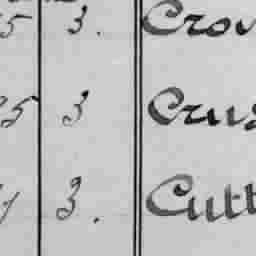 5 3. Crow
25 3 Crus
3. Cutt